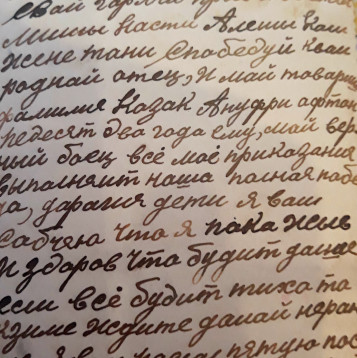 Свай
Мишы Насти Алёши Кат
Жене тани Споведуй к вам
роднай отец, и май товарищ
фамилия Казак Ануфри афтан
педесят два года ему, май вер
ный боец всё моё приказания
выполняит наша полная побе
да, дарагия дети я ваш
Сабчяю что я пака жыв
и здаров что будит дальше
если всё будит тиха та
кзиме ждите дамай неран
пятую